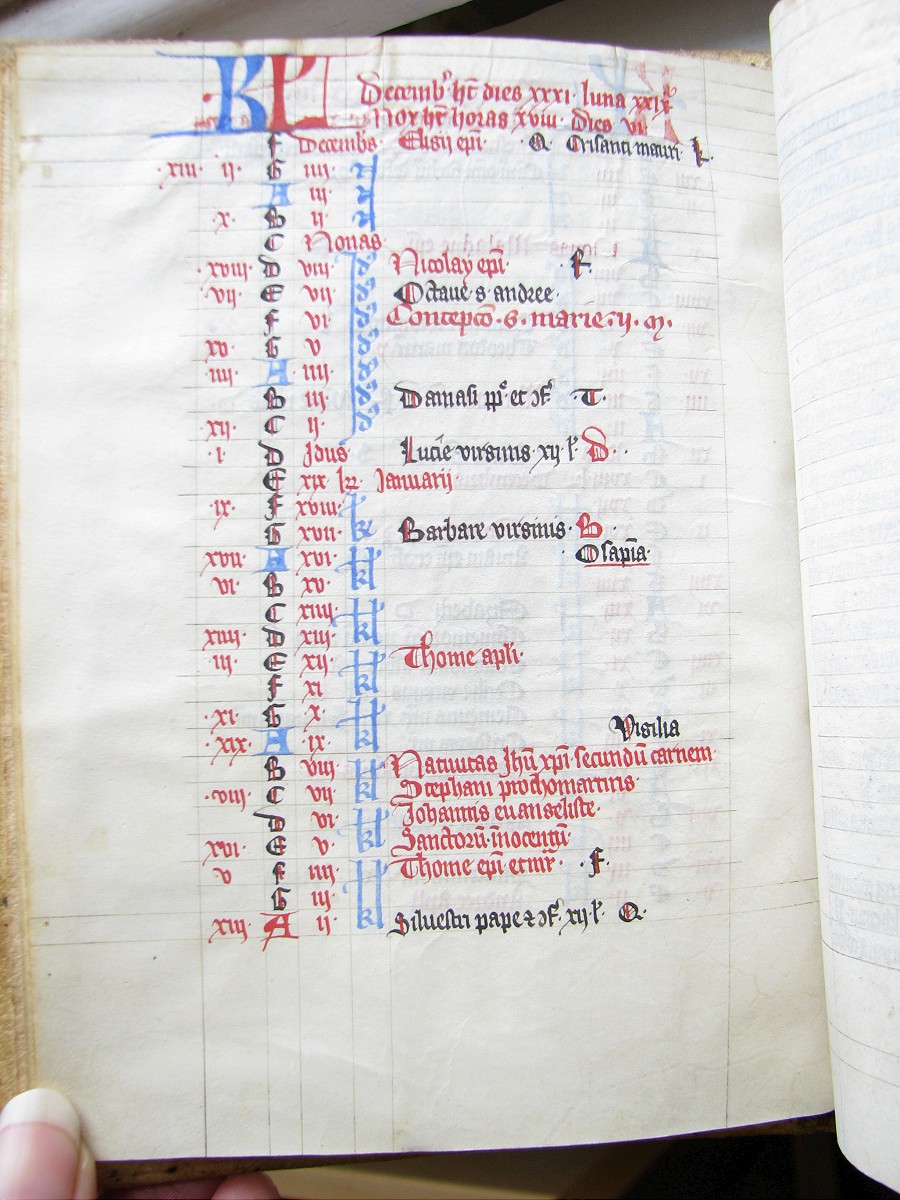 KL Decembr ht dies xxxi luna xxix
Nox ht horas xviii dies vi
f Decembs Elisii epi Q Crisanti mauri k
xiii ii G iiii N
A iii N
x B ii N
C Nonas
xviii D viii Id Nicolay epi F
vii E vii Id Octaue s andree
f vi Id Conceptio s marie v m
xv G v Id
iiii A iiii Id
B iii Id Damasi pp et cf T
xii C ii Id
i D Idus Lucie virginis xii l D
E xix kl Januarii
ix f xviii kl
G xvii kl Barbare virginis B
xvii A xvi kl O sapia
vi B xv
C xiiii kl
xiiii D xiii
iii E xii kl Thome apli
f xi
xi G x kl Vigilia
xix A ix
B viii kl Natiuitas Jhu xpi secundu carnem
viii C vii Stephani prothomartiris
D vi kl Johannis euangeliste
xvi E v Sanctoru inocentu
v f iiii kl Thome epi et mr F
G iii
xiii A ii kl Siluestri pape et cf xii l Q